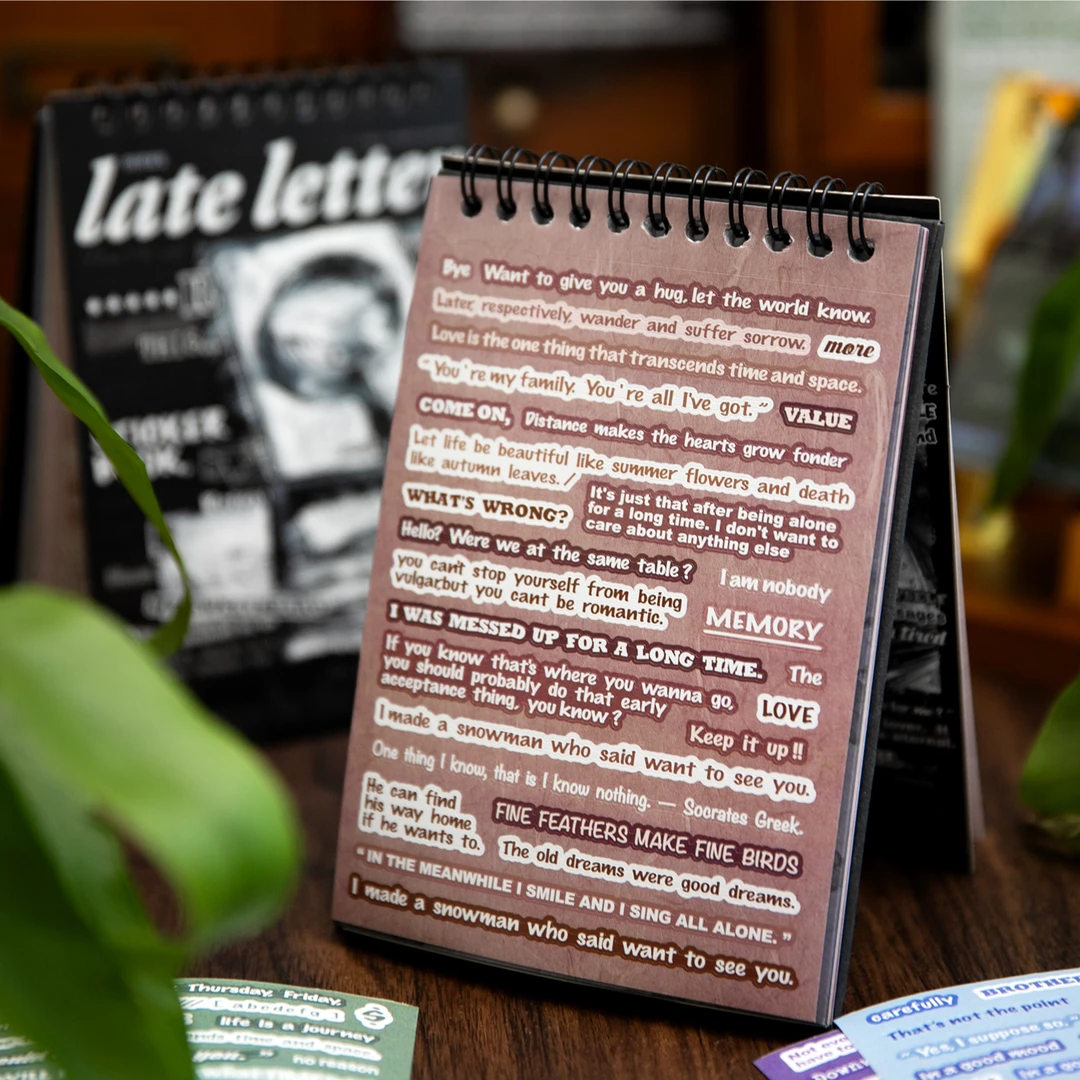 late letter
Bye Want to give you a hug, let the world know.
Later, respectively, wander and suffer sorrow. more
Love is the one thing that transcends time and space.
"You're my family. You're all I've got." VALUE
COME ON, Distance makes the hearts grow fonder
Let life be beautiful like summer flowers and death
like autumn leaves. /
WHAT'S WRONG?
It's just that after being alone
for a long time. I don't want to
care about anything else
Hello? Were we at the same table?
I am nobody
you can't stop yourself from being
vulgarbut you cant be romantic.
MEMORY
I WAS MESSED UP FOR A LONG TIME. The
If you know that's where you wanna go,
you should probably do that early
acceptance thing, you know?
LOVE
Keep it up!!
I made a snowman who said want to see you.
One thing I know, that is I know nothing. — Socrates Greek.
He can find
his way home
if he wants to.
FINE FEATHERS MAKE FINE BIRDS
The old dreams were good dreams.
"IN THE MEANWHILE I SMILE AND I SING ALL ALONE."
I made a snowman who said want to see you.
Thursday, Friday,
life is a journey
time and space.
you."
no reason
carefully BROTHER
That's not the point
"Yes, I suppose so."
in a good mood
Not eve
have to